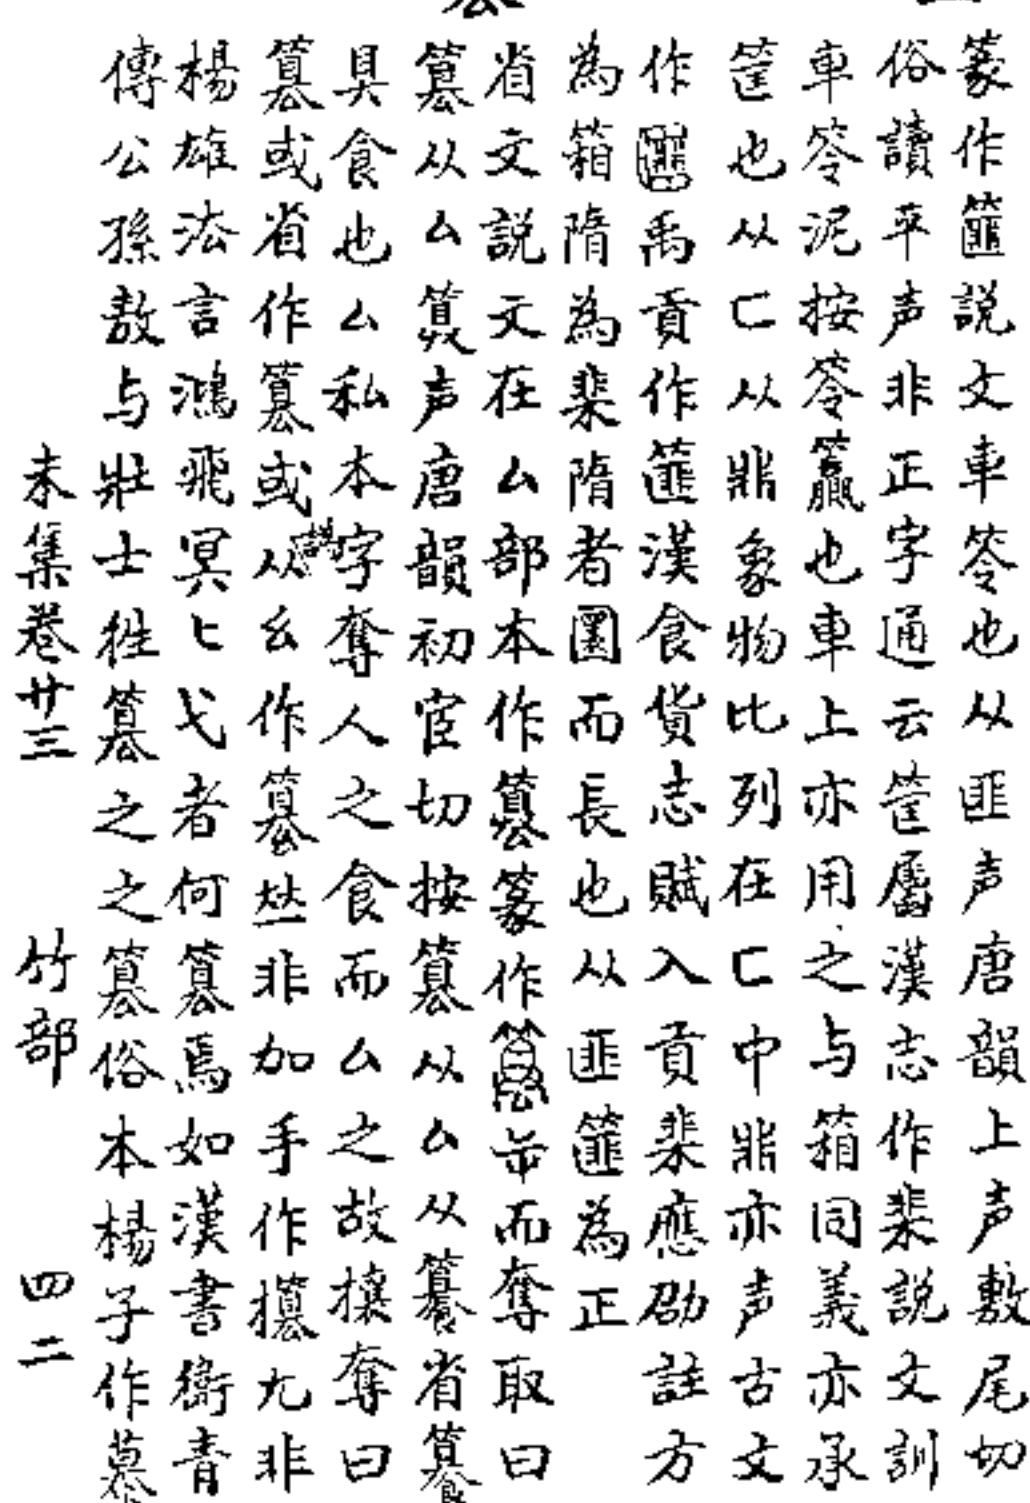 篆作篚説文車笭也从匪声唐韻上声敷尾切
俗讀平声非正字通云筐屬漢志作棐説文訓
車笭泥按笭籯也車上亦用之与箱同義亦承
筐也从匚从非象物比列在匚中非亦声古文
作禹貢作篚漢食貨志賦入貢棐應劭註方
為箱隋為棐隋者圜而長也从匪篚為正
省文説文在厶部本作篡篆作屰而奪取曰
篡从厶算声唐韻初宦切按篡从厶从籑省籑
具食也厶私本字奪人之食而厶之故攘奪曰
篡或省作篡或从幺作篡𠀤非加手作攥尤非
楊雄法言鴻飛冥匕弋者何篡焉如漢書衛青
傳公孫敖与壯士往篡之之篡俗本楊子作慕
未集卷廿三 竹部 四二